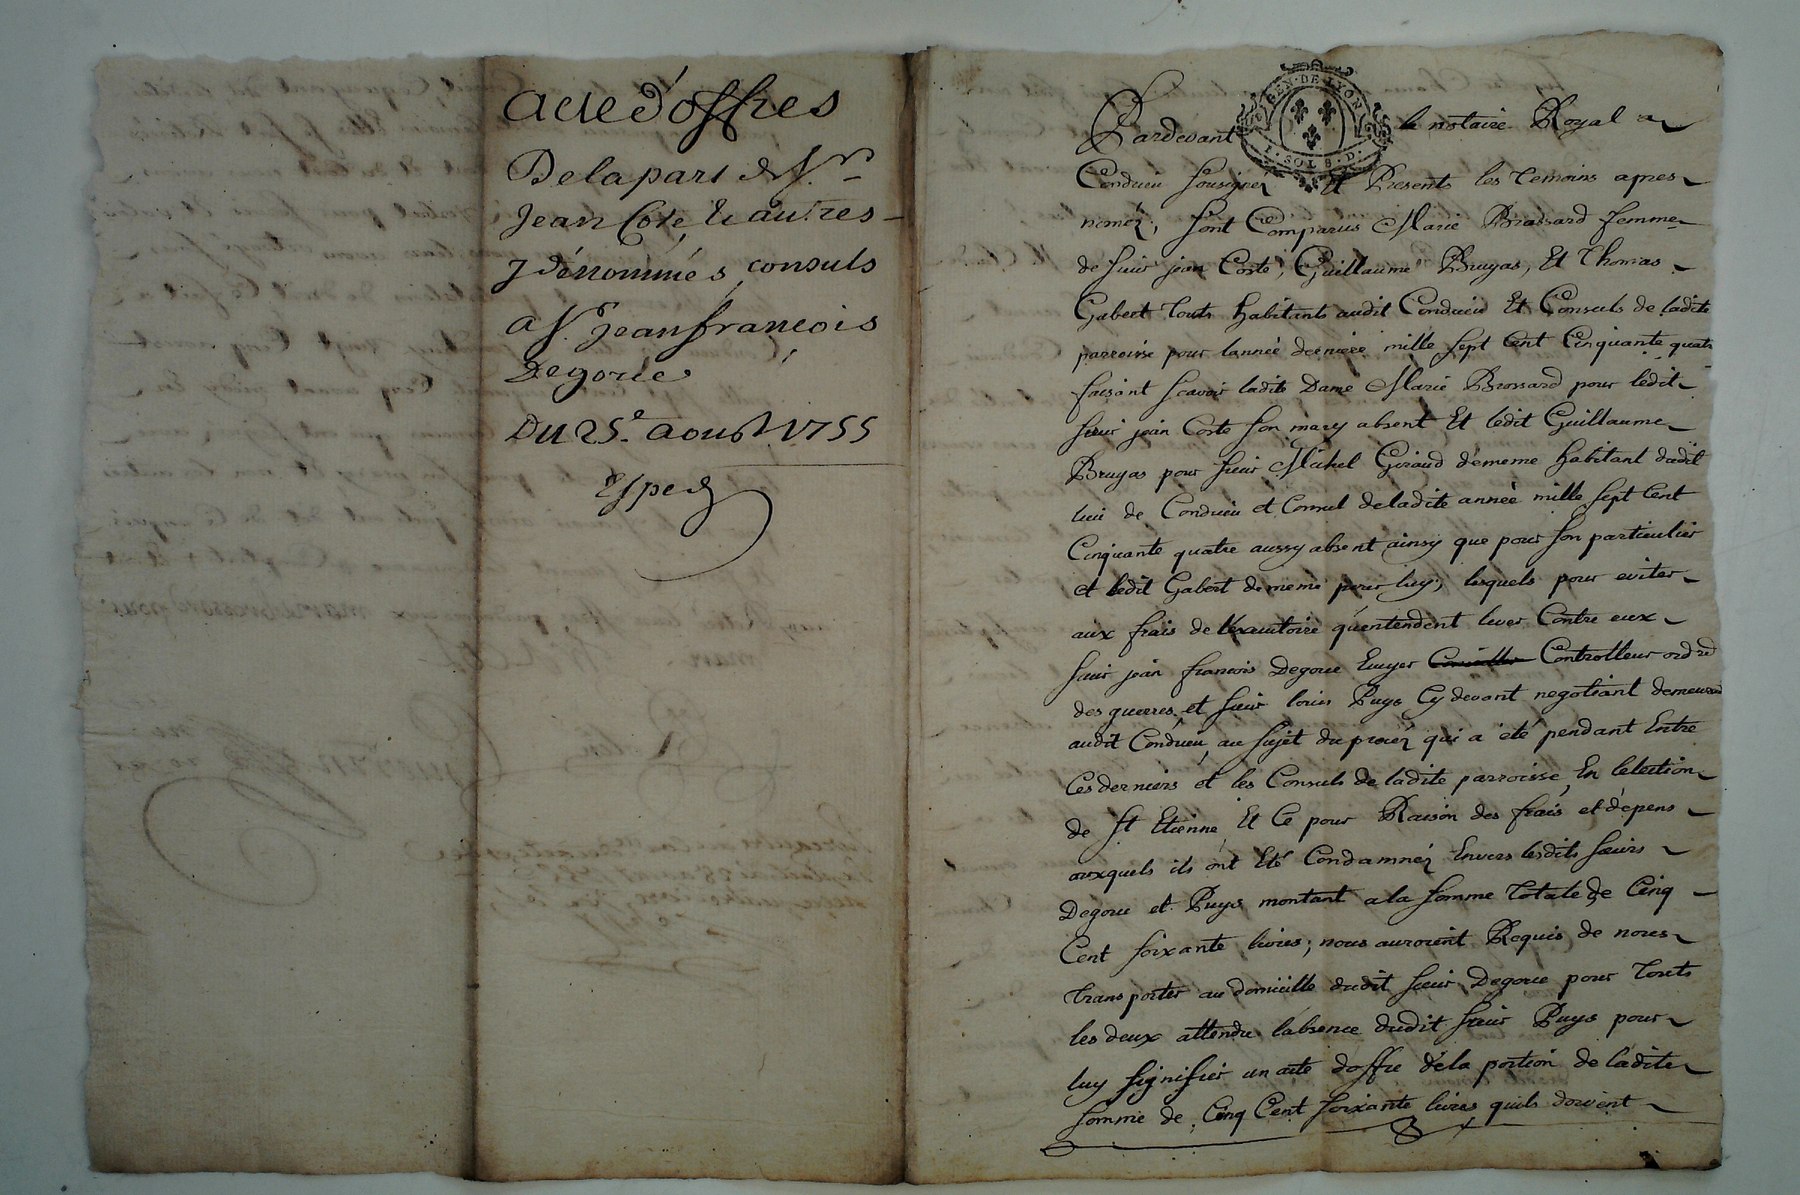 acte d'offres
De la part de Sr.
Jean Coste & autres
y dénommés, consuls
a Sr. Jean françois
Degoüe
Du 25e. aoust 1755
Exped
GEN. DE LYON
1. SOL 8. D.
Pardevant le notaire Royal a
Condrieu sousigné Et Presents les temoins apres
nomméz, sont Comparus Marie Brossard femme
de sieur jean Coste, Guillaume Bruyas, Et Thomas
Gabert touts habitants audit Condrieu Et Consuls de ladite
parroisse pour lannée derniere mille sept Cent Cinquante quatre
faisant scavoir ladite Dame Marie Brossard pour ledit
sieur jean Coste son mary absent Et ledit Guillaume
Bruyas pour sieur Michel Giraud demême habitant dudit
lui de Condrieu et Consul deladite année mille sept Cent
Cinquante quatre aussy absent ainsy que pour son particulier
et ledit Gabert demême pour luy; lesquels pour eviter
aux frais de lexecutoire qu'entendent lever Contre eux
sieur jean françois Degoüe Ecuyer Controlleur ord.re
des guerres et sieur louis Puys Cy devant negotiant demeurant
audit Condrieu, au sujet du procéz qui a été pendant Entre
Ces derniers et les Consuls de ladite parroisse, En lelection
de St Etienne, Et Ce pour Raison des frais et dépens
auxquels ils ont Eté Condamnéz Envers lesdits sieurs
Degoüe et Puys montant a la somme totale de Cinq
Cent soixante livres; nous auroient Requis de nous
transporter au domicille dudit sieur Degoüe pour touts
les deux attendu labsence dudit sieur Puys pour
luy signifier un acte doffre dela portion de ladite
somme de Cinq Cent soixante livres quils doivent